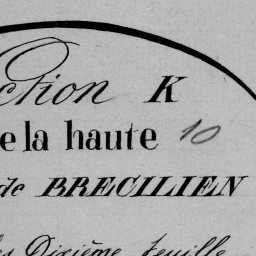 ction K
e la haute 10
de BRECILIEN
es Dixième feuille